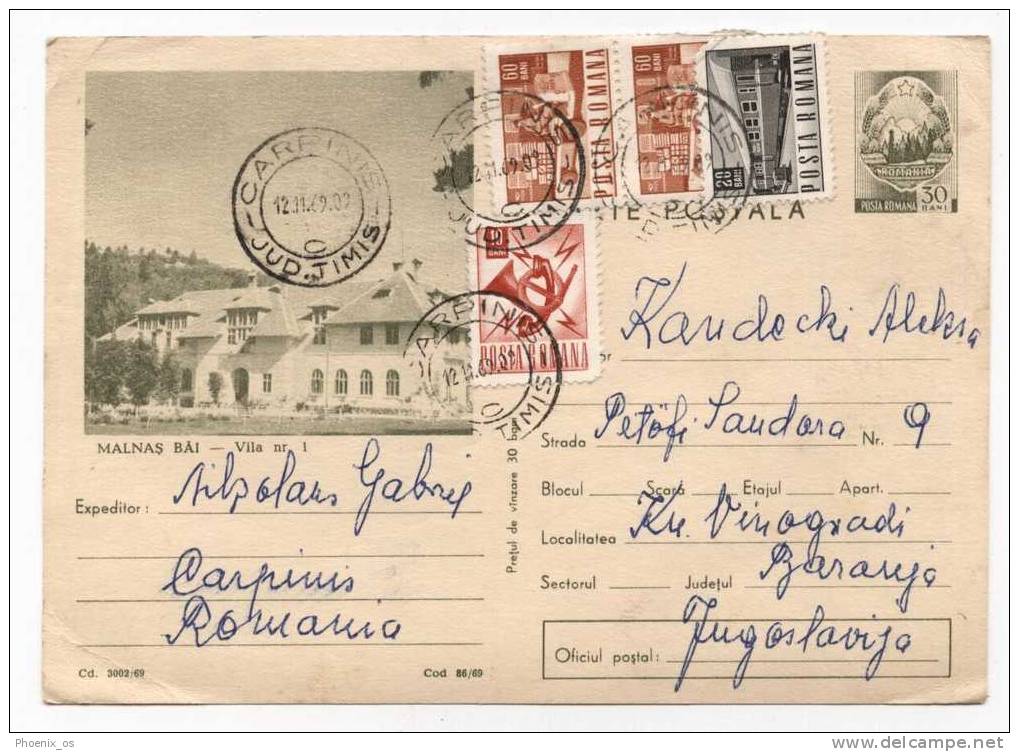 60 BANI
POSTA ROMANA
60 BANI
POSTA ROMANA
20 BANI
POSTA ROMANA
ROMANIA
POSTA ROMANA
30 BANI
CARPINIS
12.11.69.02
JUD. TIMIS
CARPINIS
12.11.69.02
JUD. TIMIS
TIMIS
TE POȘTALA
BANI
POSTA ROMANA
CARPINIS
12.11.69.02
TIMIS
MALNAȘ BĂI — Vila nr. 1
Expeditor: Gabriel
Carpinis
Romania
Cd. 3002/69
Cod 86/69
Prețul de vînzare 30 bani
Kandecki Aleksa
Strada Petöfi Sandora Nr. 9
Blocul Scara Etajul Apart.
Localitatea Kn. Vinogradi
Sectorul Județul Baranja
Jugoslavija
Oficiul poștal:
Phoenix_os
www.delcampe.net